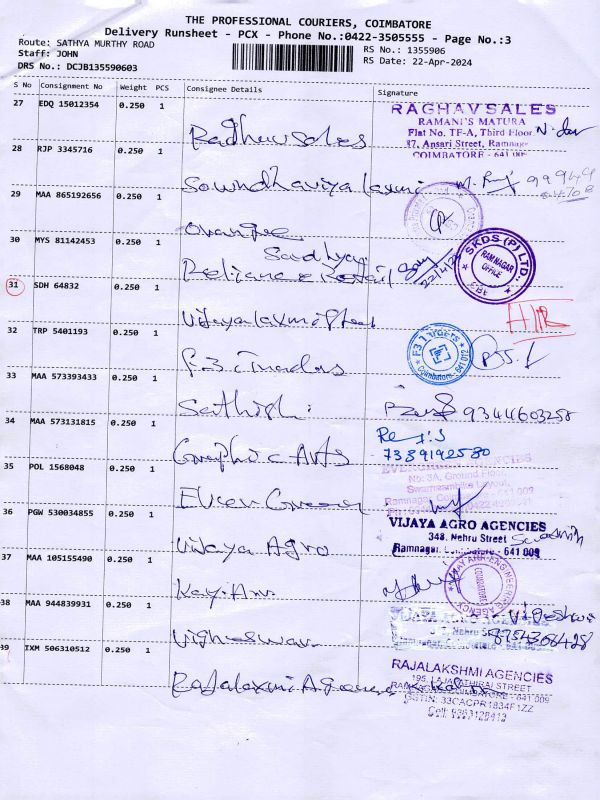 THE PROFESSIONAL COURIERS, COIMBATORE
Delivery Runsheet - PCX - Phone No.:0422-3505555 - Page No.:3
Route: SATHYA MURTHY ROAD
RS No.: 1355906
Staff: JOHN
RS Date: 22-Apr-2024
DRS No.: DCJB135590603
S No Consignment No Weight PCS Consignee Details Signature
27 EDQ 15012354 0.250 1
RAGHAV SALES
RAMANI'S MATURA
Flat No. TF-A, Third Floor
87, Ansari Street, Ramnagar
COIMBATORE - 641 009
28 RJP 3345716 0.250 1
Soundhaviya Laxmi
29 MAA 865192656 0.250 1
Orange
30 MYS 81142453 0.250 1
Sandhya
Reliance Retail
SKDS (P) LTD.
RAM NAGAR
OFFICE
31 SDH 64832 0.250 1
Vijayalaxmi Steel
32 TRP 5401193 0.250 1
F3 Traders
Coimbatore - 641 012
33 MAA 573393433 0.250 1
Sathish
9344603258
34 MAA 573131815 0.250 1
Graphic Arts
7339192580
35 POL 1568048 0.250 1
Ever Green
EVERGREEN AGENCIES
No: 3A, Ground Floor,
36 PGW 530034855 0.250 1
Vijaya Agro
VIJAYA AGRO AGENCIES
348, Nehru Street
Ramnagar, Coimbatore - 641 009
37 MAA 105155490 0.250 1
38 MAA 944839931 0.250 1
Vigheswar
8754368428
39 IXM 506310512 0.250 1
Rajalaxmi Agencies
RAJALAKSHMI AGENCIES
195, RAJAJI STREET
COIMBATORE - 641 009
GSTIN: 33CACPR1834F1ZZ